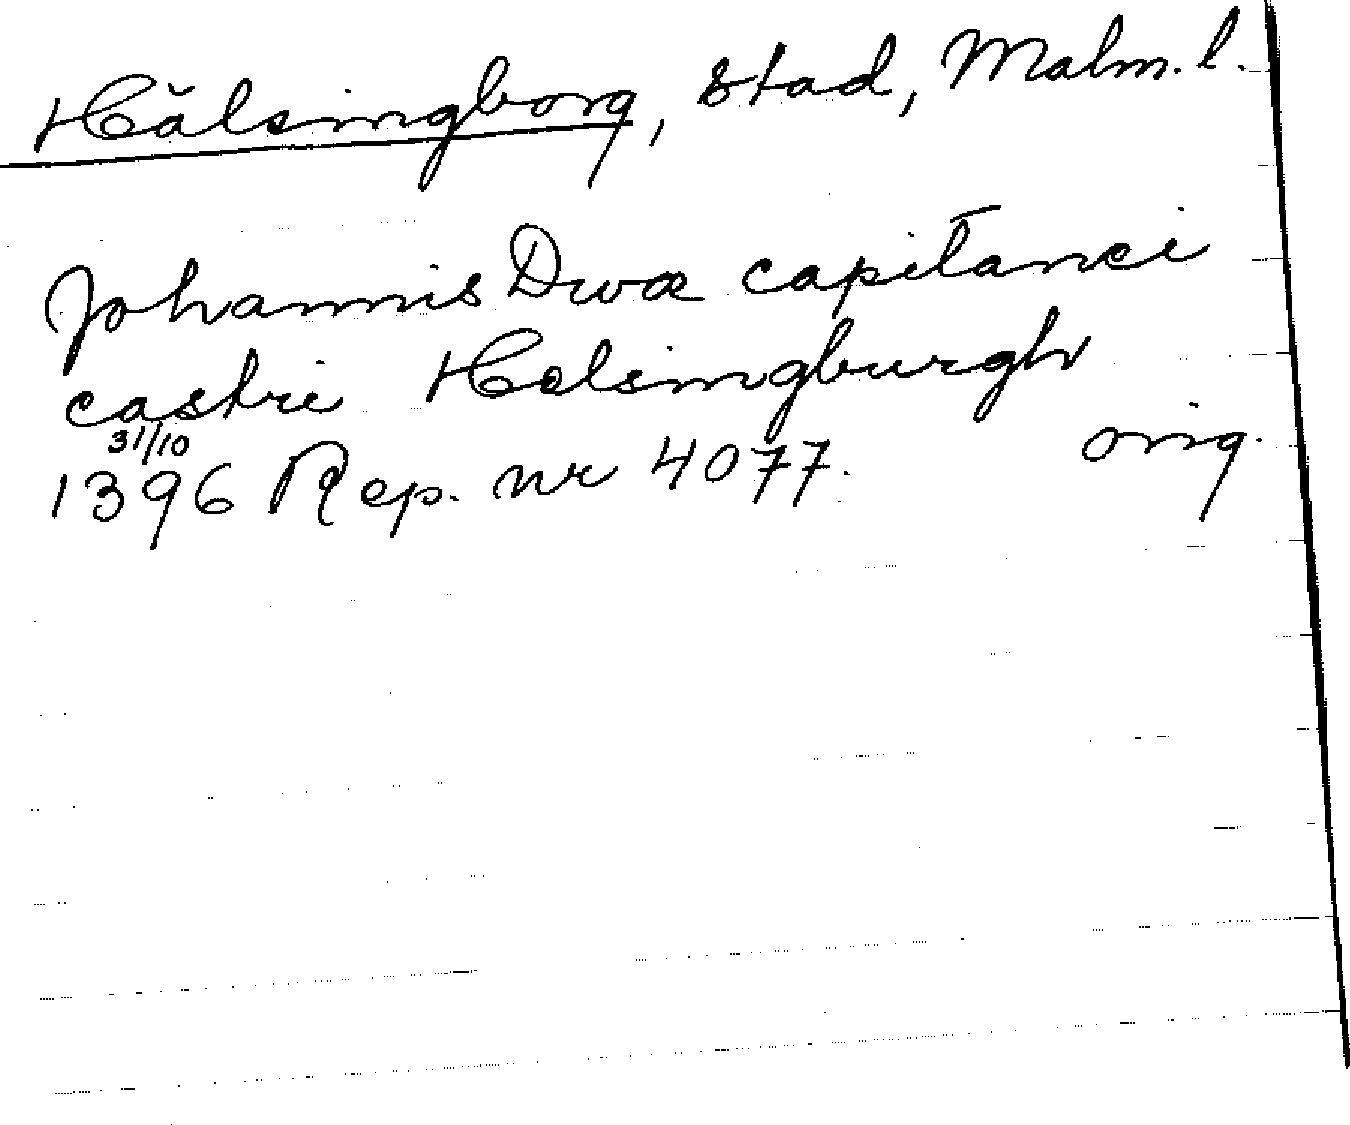 Hälsingborg, stad, Malm. l.
Johannis Dwæ capitanei
castri Helsingburgh
31/10
1396 Rep. nr 4077. orig.